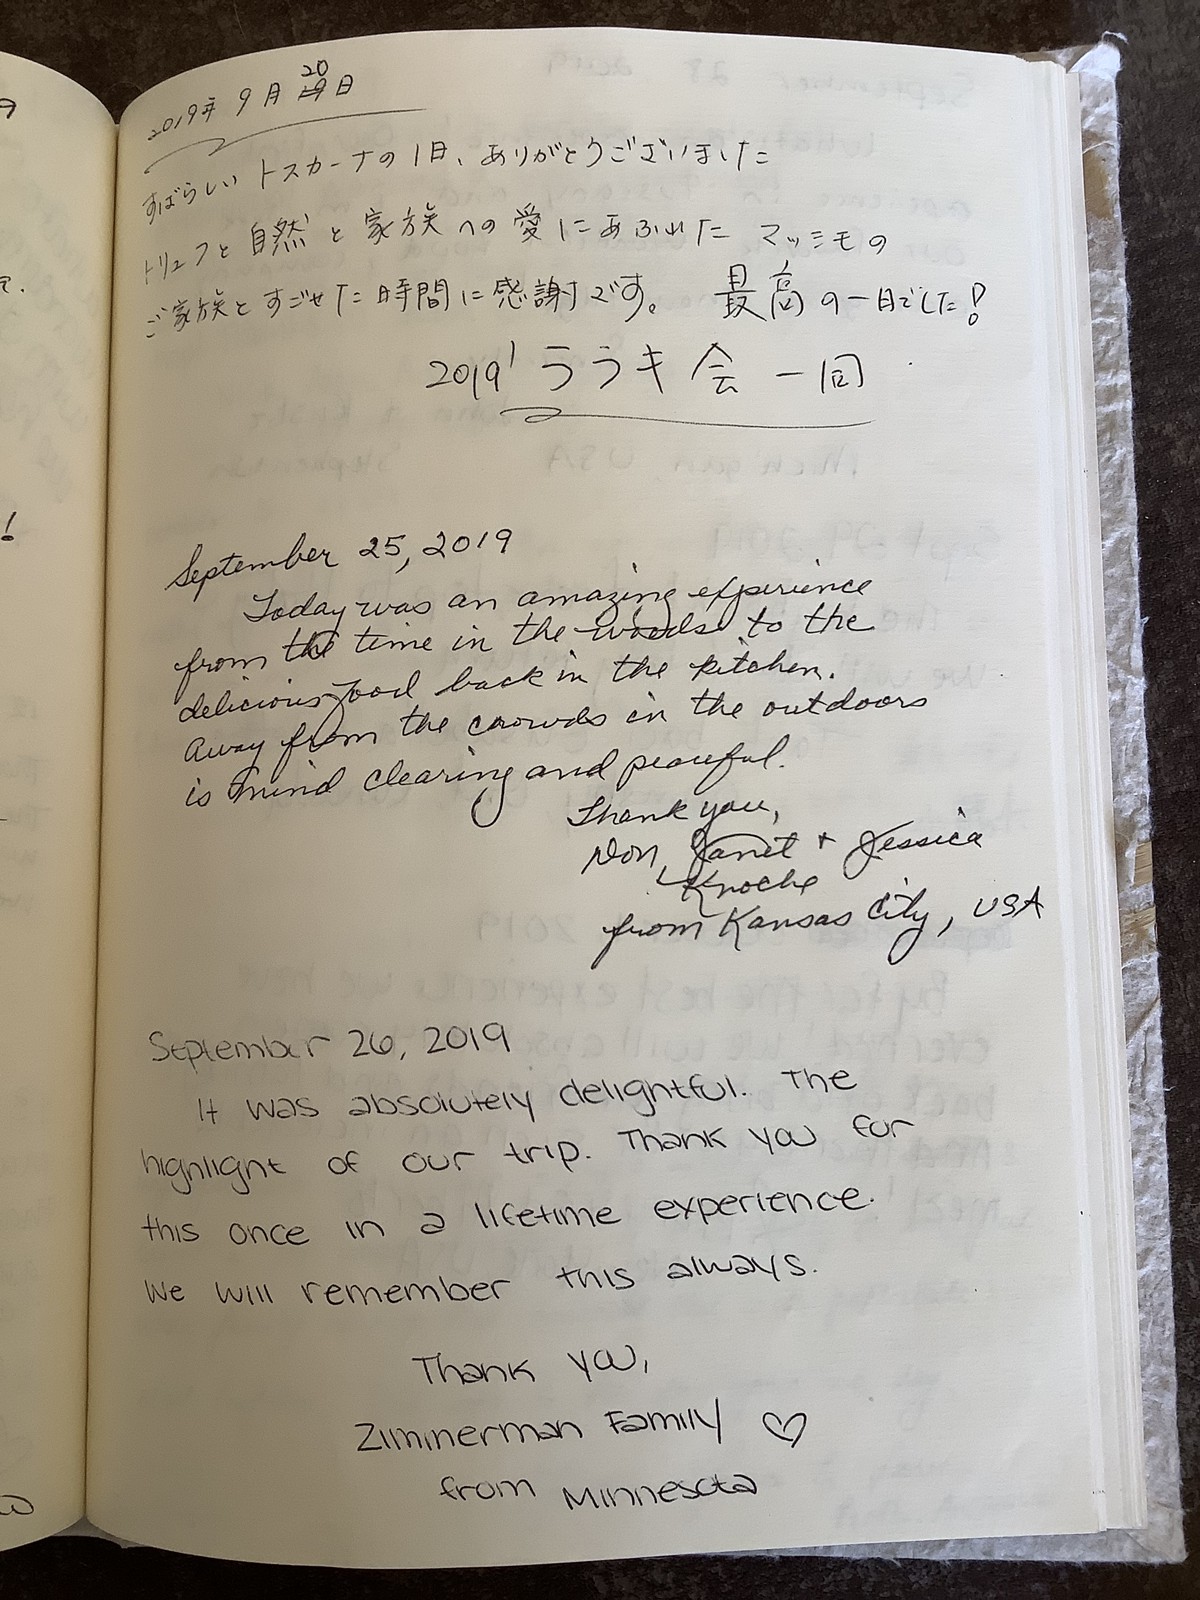 2019年 9月 20日
すばらしい トスカーナの1日、ありがとうございました
トリュフと自然と家族への愛にあふれたマッシモの
ご家族とすごせた時間に感謝です。 最高の一日でした!
2019' ララキ会一同
September 25, 2019
Today was an amazing experience
from the time in the woods to the
delicious food back in the kitchen.
Away from the crowds in the outdoors
is mind clearing and peaceful.
Thank you,
Don, Janet + Jessica
Knoche
from Kansas City, USA
September 26, 2019
It was absolutely delightful. The
highlight of our trip. Thank you for
this once in a lifetime experience.
We will remember this always.
Thank you,
Zimmerman Family ♡
from Minnesota